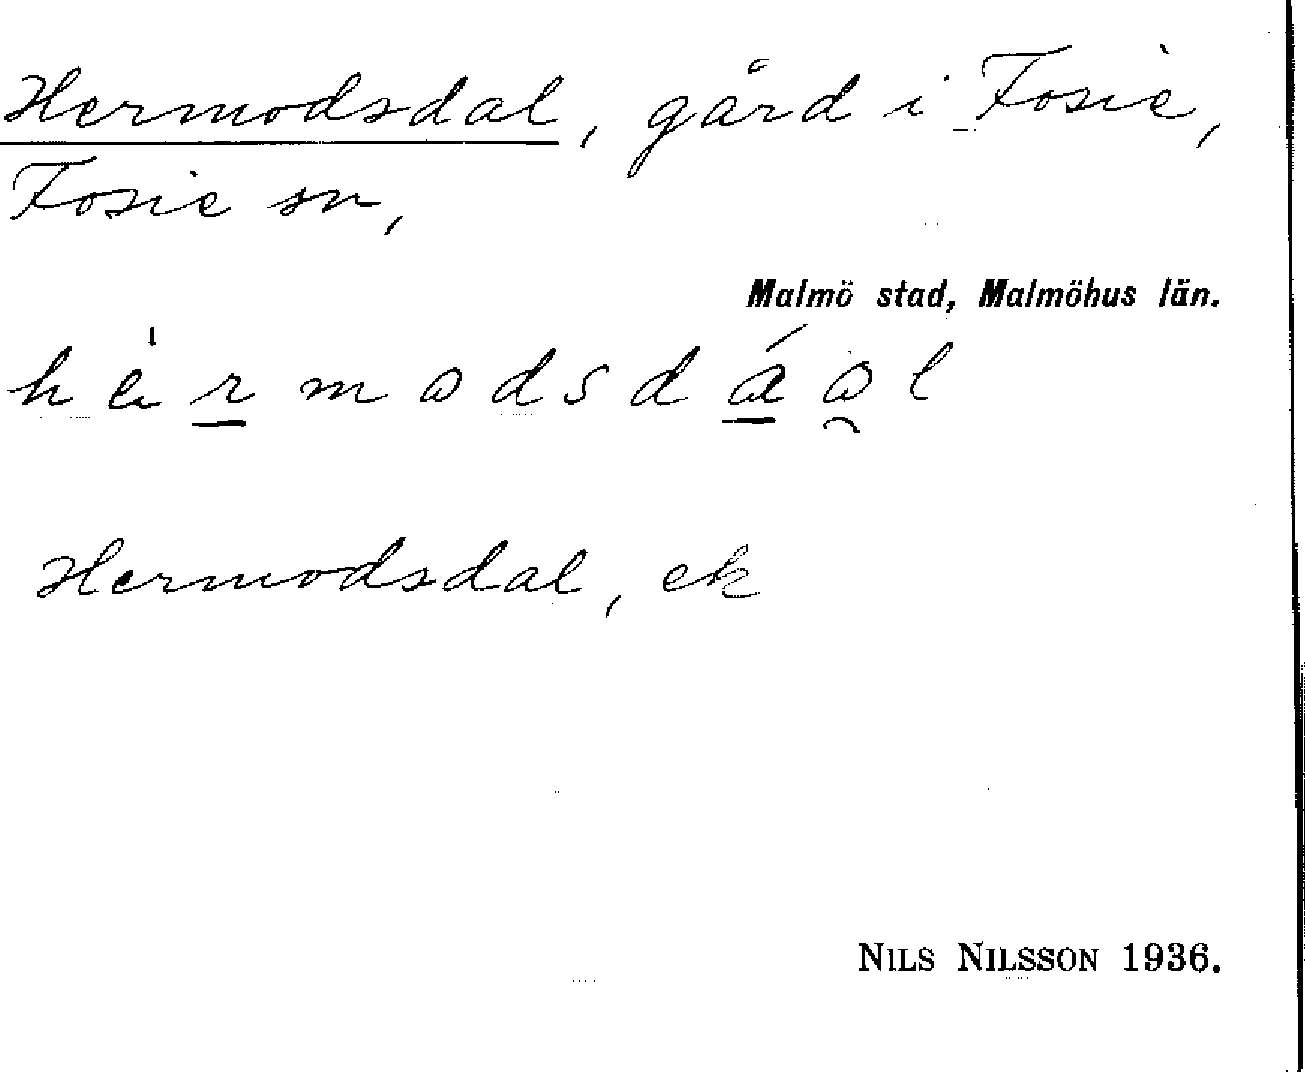 Hermodsdal, gård i Fosie,
Fosie sn,
Malmö stad, Malmöhus län.
Hermodsdal, ek
NILS NILSSON 1936.